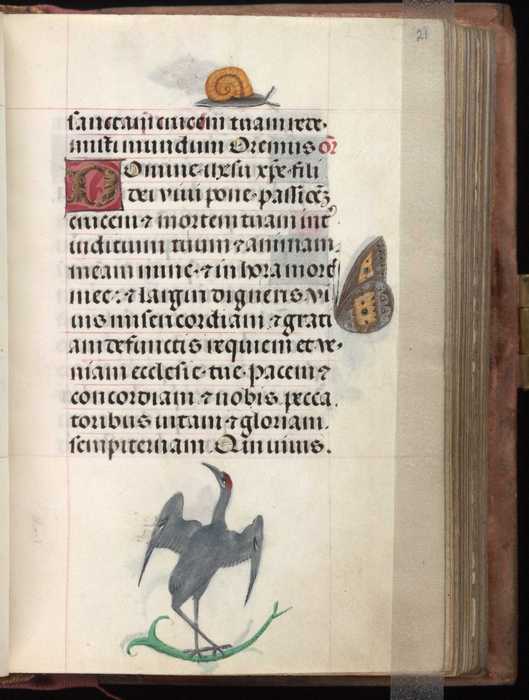 21
sanctam crucem tuam rede-
misti mundum Oremus or
Domine ihesu xpe fili
dei vivi pone passioez
crucem ⁊ mortem tuam int
iudicium tuum ⁊ animam
meam nunc ⁊ in hora mort
mee: ⁊ largiri digneris vi
uis misericordiam ⁊ grati
am defunctis requiem et ve-
niam ecclesie tue pacem ⁊
concordiam ⁊ nobis pecca
toribus vitam ⁊ gloriam
sempiternam. Qui vivis.